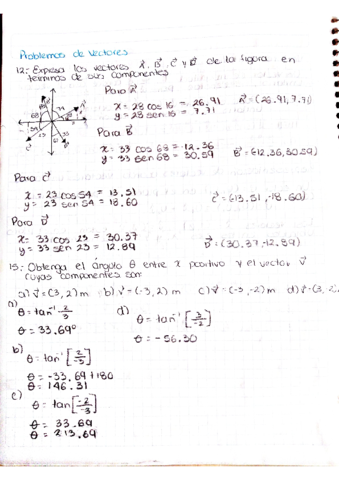 Problemas de vectores
12.- Expresa los vectores A⃗, B⃗, C⃗ y D⃗ de la figura en
terminos de sus componentes
Para A⃗
x = 28 cos 16 = 26.91 A⃗ = (26.91, 7.71)
y = 28 sen 16 = 7.71
Para B⃗
x = 33 cos 68 = 12.36
y = 33 sen 68 = 30.59 B⃗ = (-12.36, 30.59)
Para C⃗
x = 23 cos 54 = 13.51
y = 23 sen 54 = 18.60 C⃗ = (-13.51, -18.60)
Para D⃗
x = 33 cos 23 = 30.37
y = 33 sen 23 = 12.89 D⃗ = (30.37, -12.89)
15.- Obtenga el ángulo θ entre x positivo y el vector v⃗
cuyas componentes son:
a) v⃗ = (3, 2) m b) v⃗ = (-3, 2) m c) v⃗ = (-3, -2) m d) v⃗ =
a)
θ = tan⁻¹ 2/3
θ = 33.69°
d)
θ = tan⁻¹ [3/-2]
θ = -56.30
b)
θ = tan⁻¹ [2/-3]
θ = -33.69 + 180
θ = 146.31
c)
θ = tan [-2/-3]
θ = 33.69
θ = 213.69